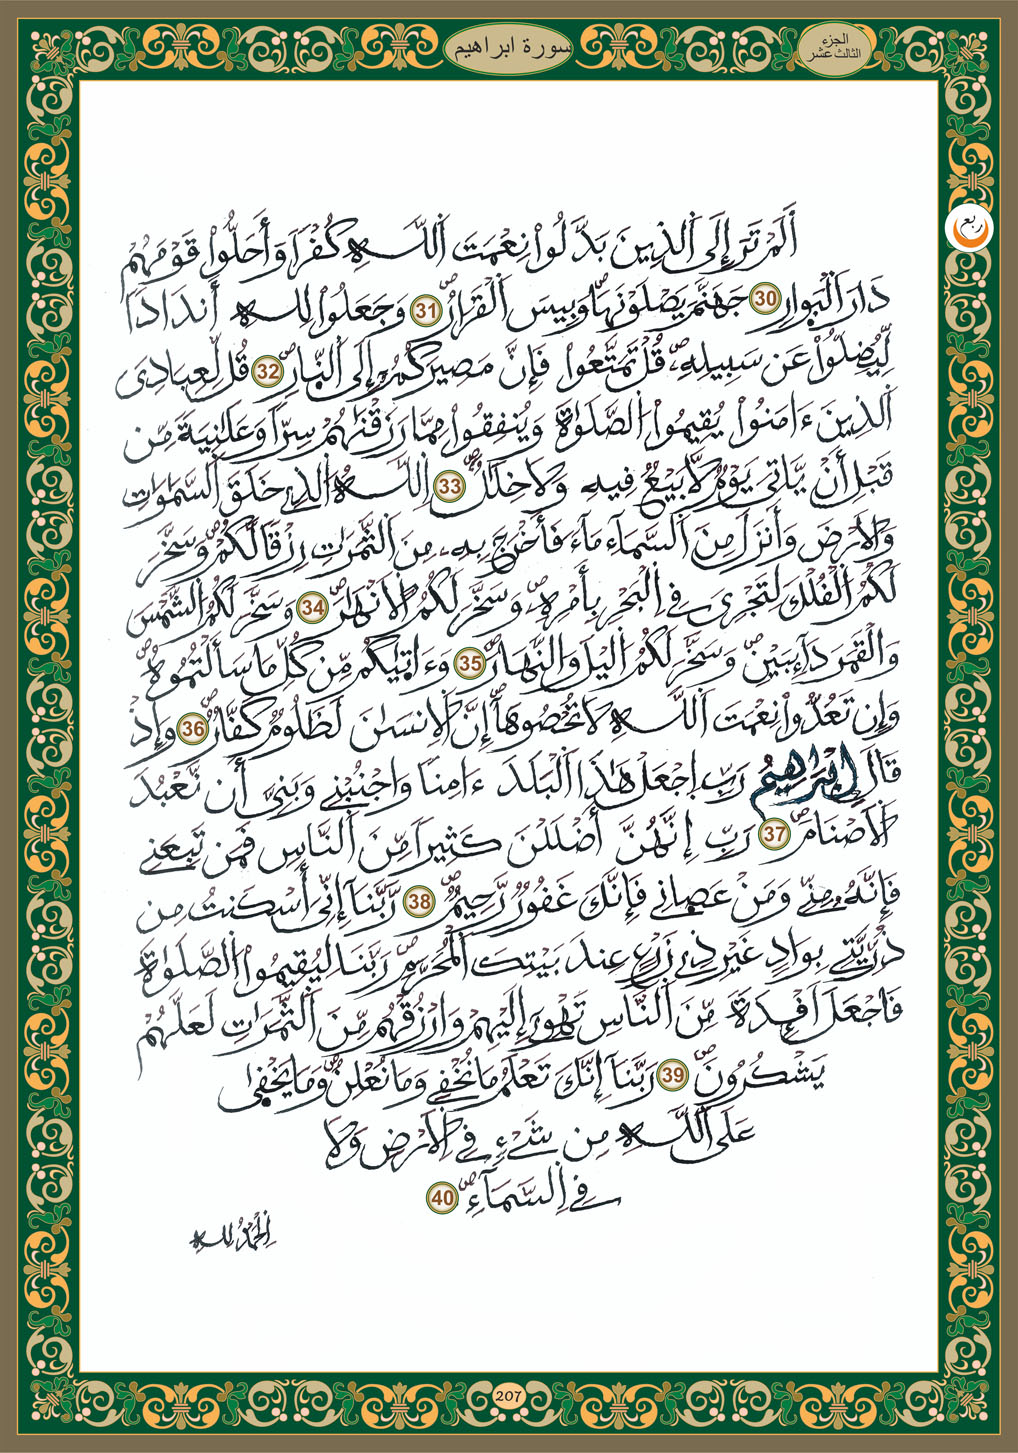 سورة ابراهيم
الجزء
الثالث عشر
ربع
أَلَمْ تَرَ إِلَى اَلذِينَ بَدَّلُواْ نِعْمَتَ اَللَّهِ كُفْراً وَأَحَلُّواْ قَوْمَهُمْ
دَارَ اَلْبَوارِ 30 جَهَنَّمَ يَصْلَوْنَهَا وَبِيسَ اَلْقَرَارُ 31 وَجَعَلُواْ لِلهِ أَندَاداً
لِّيُضِلُّواْ عَن سَبِيلِهِ قُلْ تَمَتَّعُوا فَإِنَّ مَصِيرَكُمُ إِلَى اَلنَّارِ 32 قُل لِّعِبَادِىَ
اَلذِينَ ءَامَنُواْ يُقِيمُواْ اَلصَّلَوٰةَ وَيُنفِقُواْ مِمَّا رَزَقْنَٰهُمْ سِرّاً وَعَلَٰنِيَةً مِّن
قَبْلِ أَنْ يَّاتِىَ يَوْمٌ لَّا بَيْعٌ فِيهِ وَلَا خِلَٰلٌ 33 اِللَّهُ اُلذِے خَلَقَ اَلسَّمَٰوَٰتِ
وَالَارْضَ وَأَنزَلَ مِنَ اَلسَّمَآءِ مَآءً فَأَخْرَجَ بِهِ مِنَ اَلثَّمَرَٰتِ رِزْقاً لَّكُمْ وَسَخَّرَ
لَكُمُ اُلْفُلْكَ لِتَجْرِىَ فِے اِلْبَحْرِ بِأَمْرِهِ وَسَخَّرَ لَكُمُ اُلَانْهَٰرَ 34 وَسَخَّرَ لَكُمُ اُلشَّمْسَ
وَالْقَمَرَ دَآئِبَيْنِ وَسَخَّرَ لَكُمُ اُليْلَ وَالنَّهَارَ 35 وَءَاتٰيكُم مِّن كُلِّ مَا سَأَلْتُمُوهُ
وَإِن تَعُدُّواْ نِعْمَتَ اَللَّهِ لَا تُحْصُوهَا إِنَّ اَلِانسَٰنَ لَظَلُومٌ كَفَّارٌ 36 وَإِذْ
قَالَ إِبْرَٰهِيمُ رَبِّ اِجْعَلْ هَٰذَا اَلْبَلَدَ ءَامِناً وَاجْنُبْنِے وَبَنِىَّ أَن نَّعْبُدَ
اَلَاصْنَامَ 37 رَبِّ إِنَّهُنَّ أَضْلَلْنَ كَثِيراً مِّنَ اَلنَّاسِ فَمَن تَبِعَنِے
فَإِنَّهُ مِنِّے وَمَنْ عَصَانِے فَإِنَّكَ غَفُورٌ رَّحِيمٌ 38 رَّبَّنَا إِنِّىَ أَسْكَنتُ مِن
ذُرِّيَّتِے بِوَادٍ غَيْرِ ذِے زَرْعٍ عِندَ بَيْتِكَ اَلْمُحَرَّمِ رَبَّنَا لِيُقِيمُواْ اُلصَّلَوٰةَ
فَاجْعَلَ اَفْـِٕدَةً مِّنَ اَلنَّاسِ تَهْوِى إِلَيْهِمْ وَارْزُقْهُم مِّنَ اَلثَّمَرَٰتِ لَعَلَّهُمْ
يَشْكُرُونَ 39 رَبَّنَآ إِنَّكَ تَعْلَمُ مَا نُخْفِے وَمَا نُعْلِنُ وَمَا يَخْفٰى
عَلَى اَللَّهِ مِن شَےْءٍ فِے اِلَارْضِ وَلَا
فِے اِلسَّمَآءِ 40
اِلْحَمْدُ لِلهِ
207